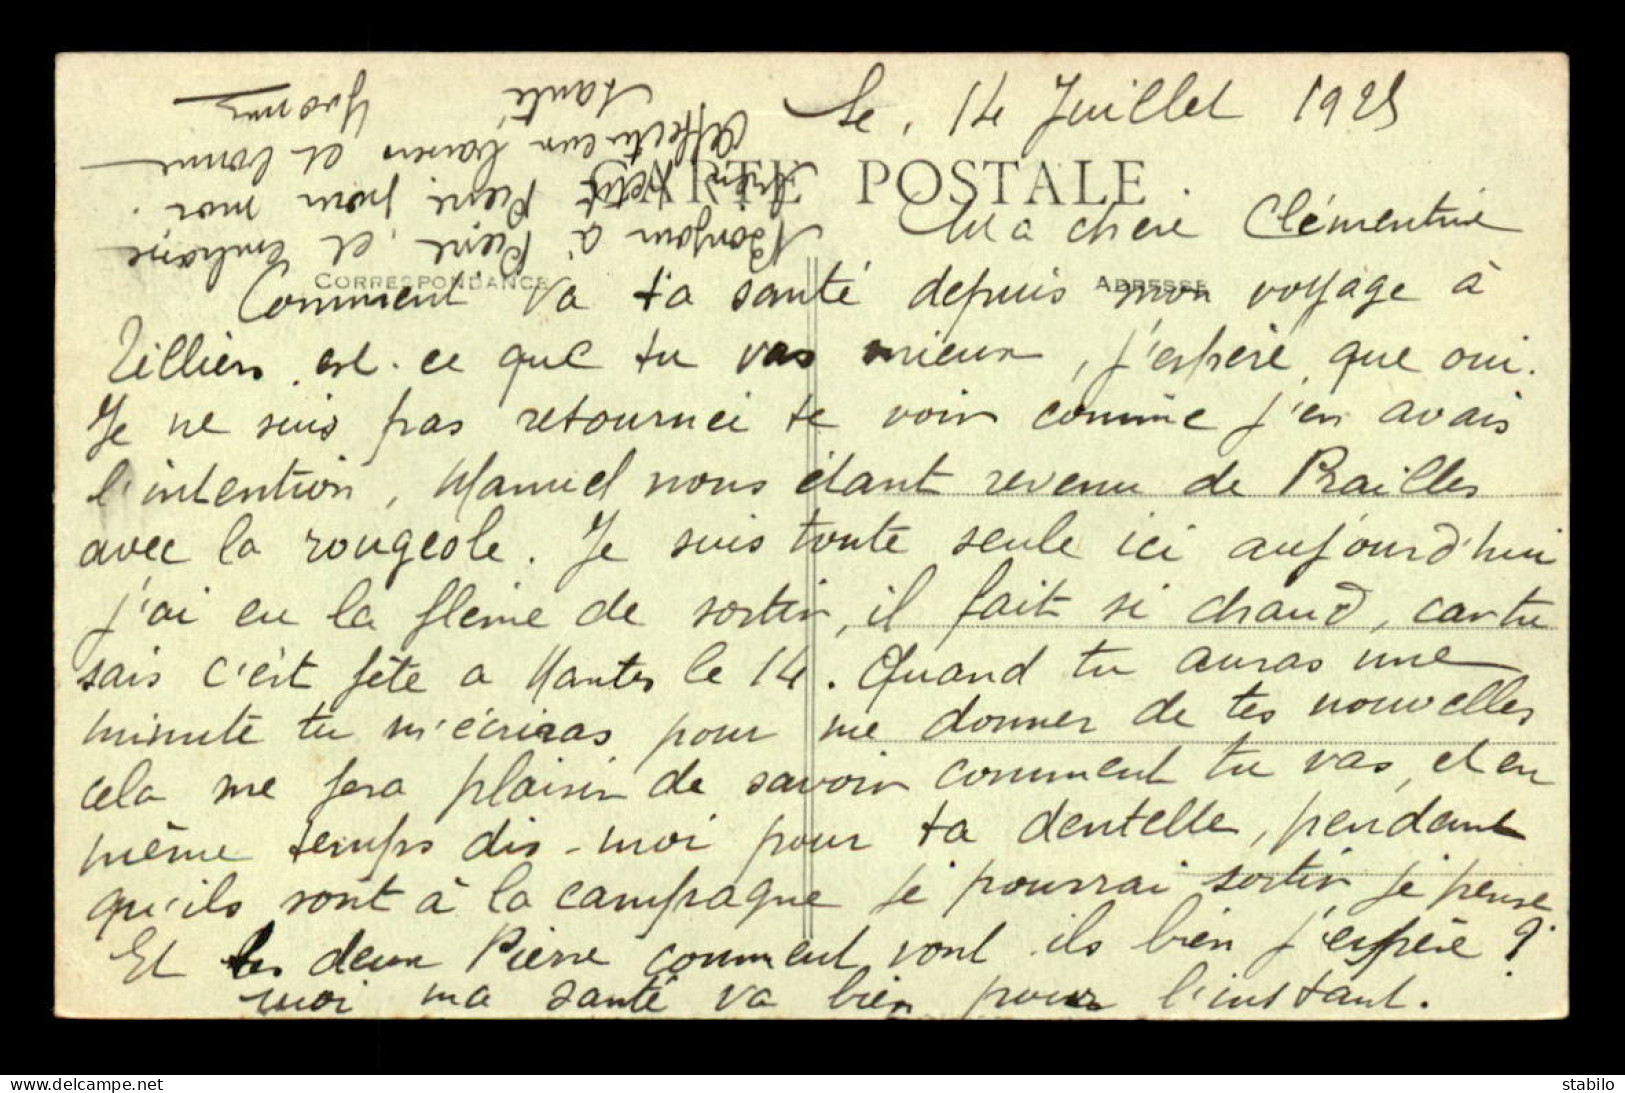 Le, 14 Juillet 1925
CARTE POSTALE
Ma chere Clémentine
CORRESPONDANCE
ADRESSE
Comment va ta santé depuis mon voyage à
Villiers est-ce que tu vas mieux, j'espère que oui.
Je ne suis pas retournei te voir comme j'en avais
l'intention, Manuel nous étant revenu de Prailles
avec la rougeole. Je suis toute seule ici aujourd'hui
j'ai eu la fleme de sortir, il fait si chaud, car tu
sais c'est fête a Mantes le 14. Quand tu auras une
minute tu m'écriras pour me donner de tes nouvelles
cela me fera plaisir de savoir comment tu vas, et en
même temps dis-moi pour ta dentelle, pendant
qu'ils sont à la campagne je pourrai sortir je pense
Et les deux Pierre comment vont ils bien j'espère ?
moi ma santé va bien pour l'instant.
Bonjour à Pierre, et Embrasse
bien petit Pierre pour moi.
Affectueux baisers et bonne
santé
Yvonne
stabilo
www.delcampe.net